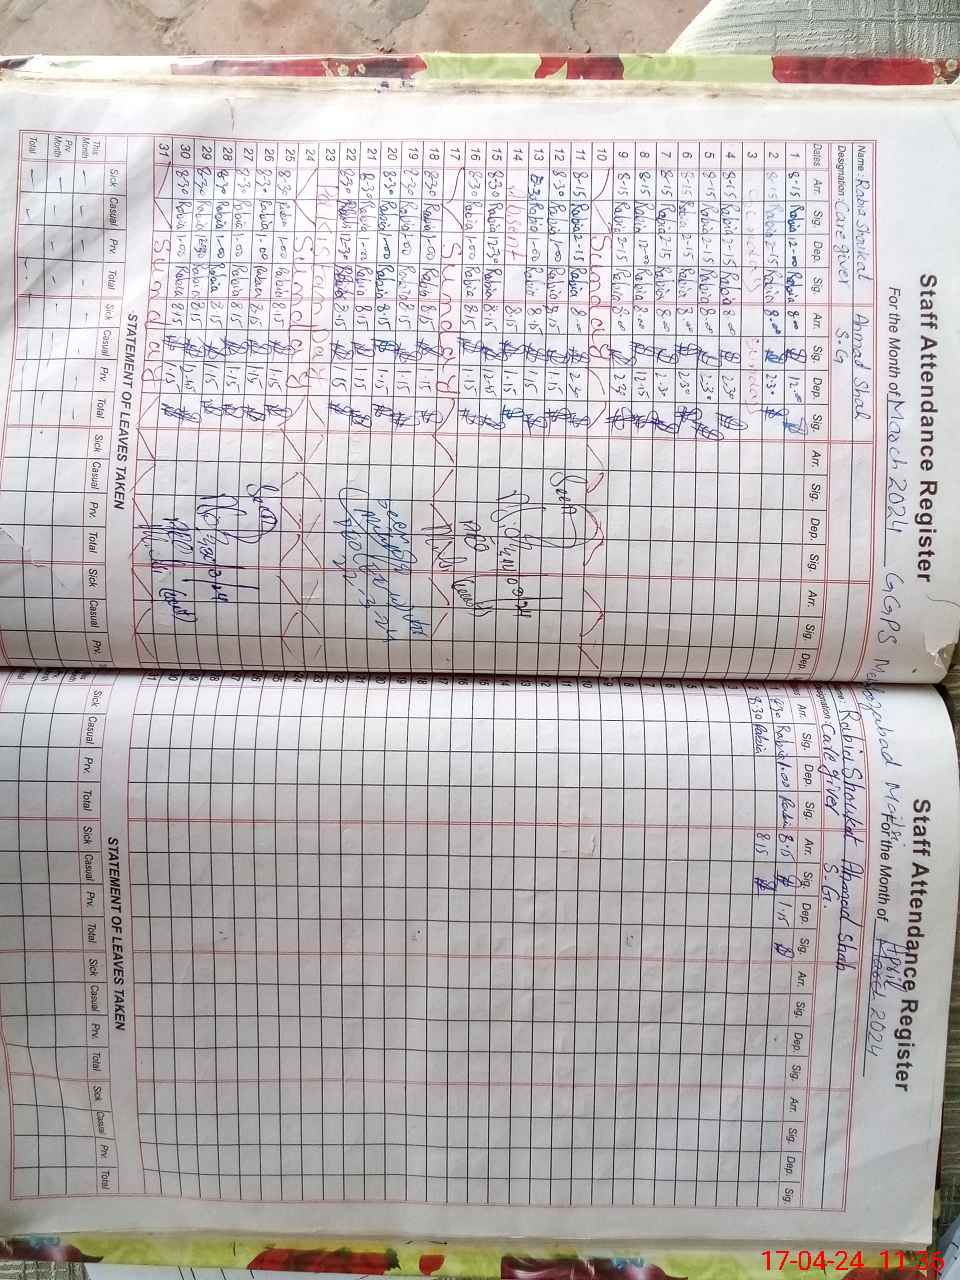 Staff Attendance Register
For the Month of March 2024 GGPS
Name: Rabia Shaukat Ahmad Shah
Designation: Care giver S.G
Dates Arr. Sig. Dep. Sig. Arr. Sig. Dep. Sig. Arr. Sig. Dep. Sig. Arr. Sig. Dep.
1 8-15 Rabia 12-00 Rabia 8-00 12-00
2 8-15 Rabia 2-15 Rabia 8-00 2-30
3
4 8-15 Rabia 2-15 Rabia 8-00 2-30
5 8-15 Rabia 2-15 Rabia 8-00 2-30
6 8-15 Rabia 2-15 Rabia 8-00 2-30
7 8-15 Rabia 2-15 Rabia 8-00 2-30
8 8-15 Rabia 12-00 Rabia 8-00 12-15
9 8-15 Rabia 2-15 Rabia 8-00 2-30
10 Sunday
11 8-15 Rabia 2-15 Rabia 8-15 2-30
12 8-30 Rabia 1-00 Rabia 8-15 1-15
13 8-30 Rabia 1-00 Rabia 8-15 1-15
14 8-15 1-15
15 8-30 Rabia 12-30 Rabia 8-15 12-45
16 8-30 Rabia 1-00 Rabia 8-15 1-15
17 Sunday
18 8-30 Rabia 1-00 Rabia 8-15 1-15
19 8-30 Rabia 1-00 Rabia 8-15 1-15
20 8-30 Rabia 1-00 Rabia 8-15 1-15
21 8-30 Rabia 1-00 Rabia 8-15 1-15
22 8-30 Rabia 12-30 Rabia 8-15 1-15
23 Pakistan Day
24 Sunday
25 8-30 Rabia 1-00 Rabia 8-15 1-15
26 8-30 Rabia 1-00 Rabia 8-15 1-15
27 8-30 Rabia 1-00 Rabia 8-15 1-15
28 8-30 Rabia 1-00 Rabia 8-15 1-15
29 8-30 Rabia 12-30 Rabia 8-15 12-45
30 8-30 Rabia 1-00 Rabia 8-15 1-15
31 Sunday
STATEMENT OF LEAVES TAKEN
Sick Casual Prv. Total Sick Casual Prv. Total Sick Casual Prv. Total Sick Casual Prv.
This Month
Prv Month
Total
Staff Attendance Register
For the Month of April 2024
Rabia Shaukat Ahmad Shah
Designation: Care giver S.G.
Arr. Sig. Dep. Sig. Arr. Sig. Dep. Sig. Arr. Sig. Dep. Sig. Arr. Sig. Dep. Sig.
1 8-30 Rabia 1-00 Rabia 8-15 1-15
2 8-30 Rabia 8-15
3
4
5
6
7
8
9
10
11
12
13
14
15
16
17
18
19
20
21
22
23
24
25
26
27
28
29
30
31
STATEMENT OF LEAVES TAKEN
Sick Casual Prv. Total Sick Casual Prv. Total Sick Casual Prv. Total Sick Casual Prv. Total
17-04-24 11:35